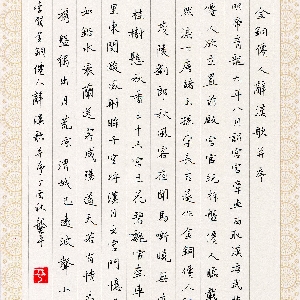 金銅僊人辭漢歌并序
明帝青龍六年八月詔宮官牽車西取漢孝武
僊人欲立置前殿宮官既拆盤僊人臨載
然淚下唐諸王孫李長吉遂作金銅僊人
茂陵劉郎秋風客夜聞馬嘶曉無
桂樹懸秋香三十六宮土花碧魏官牽車
里東關酸風射眸子空將漢月出宮門憶
如鉛水衰蘭送客咸陽道天若有情
攜盤獨出月荒涼渭城已遠波聲小
李賀金銅僊人辭漢歌并序丁酉秋